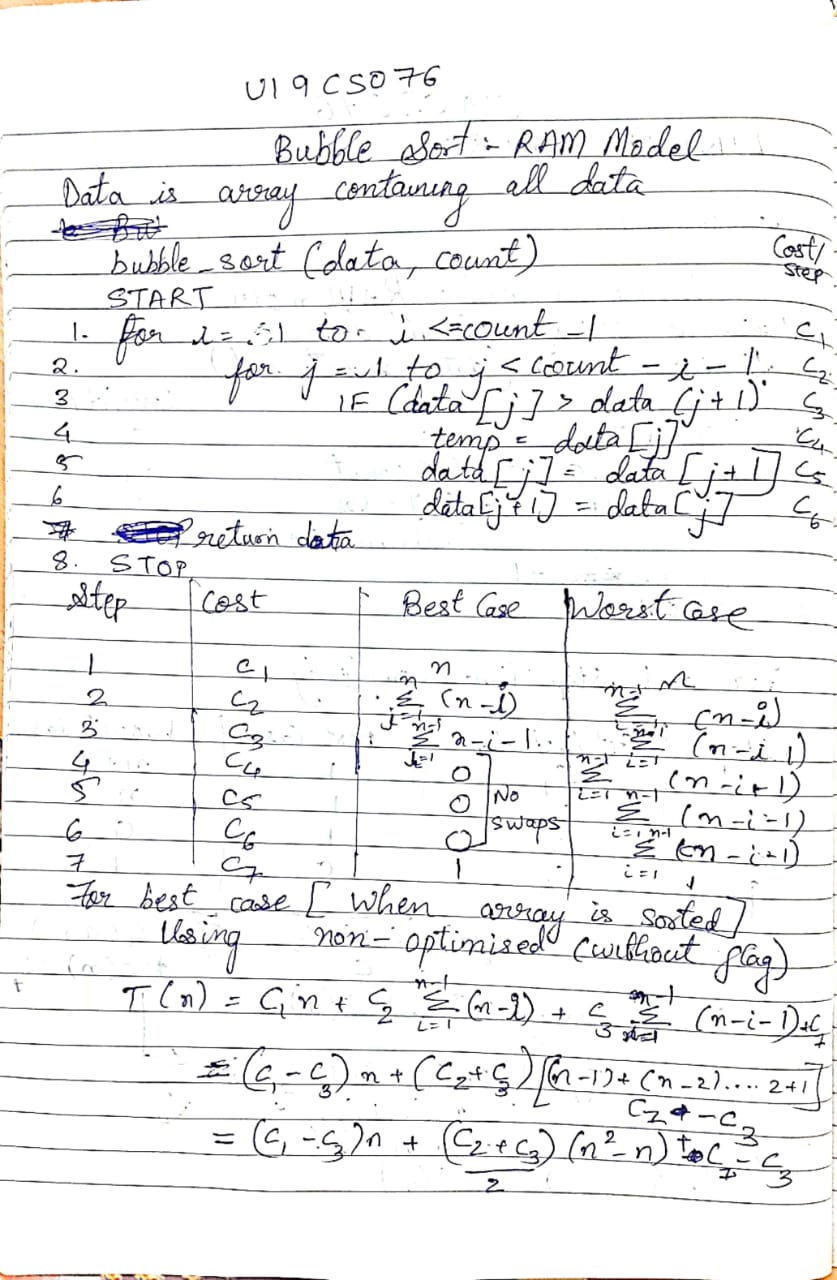 U19CS076
Bubble Sort :- RAM Model
Data is array containing all data
bubble_sort (data, count)
Cost/
step
START
1. for i = 1 to i <=count -1 C1
2. for j = 1 to j < count - i - 1 C2
3 IF (data [j] > data (j+1) C3
4 temp = data [j] C4
5 data [j] = data [j+1] C5
6 data[j+1] = data[j] C6
7 return data
8. STOP
Step Cost Best Case Worst Case
1 C1 n n
2 C2 n Σ j=1 (n-i) n-1 Σ i=1 (n-i)
3 C3 n-1 Σ i=1 n-i-1 n-1 Σ i=1 (n-i-1)
4 C4 0 n-1 Σ i=1 (n-i+1)
5 C5 0 No n-1 Σ i=1 (n-i-1)
6 C6 0 swaps n-1 Σ i=1 (n-i-1)
7 C7 1 1
For best case [ When array is sorted]
Using non-optimised (without flag)
T(n) = C1n + C2 n-1 Σ i=1 (n-i) + C3 n-1 Σ i=1 (n-i-1)+C7
= (C1-C3) n + (C2+C3) [(n-1)+(n-2).... 2+1]
C7 - C3
= (C1-C3)n + (C2+C3)/2 (n²-n) + C7 - C3